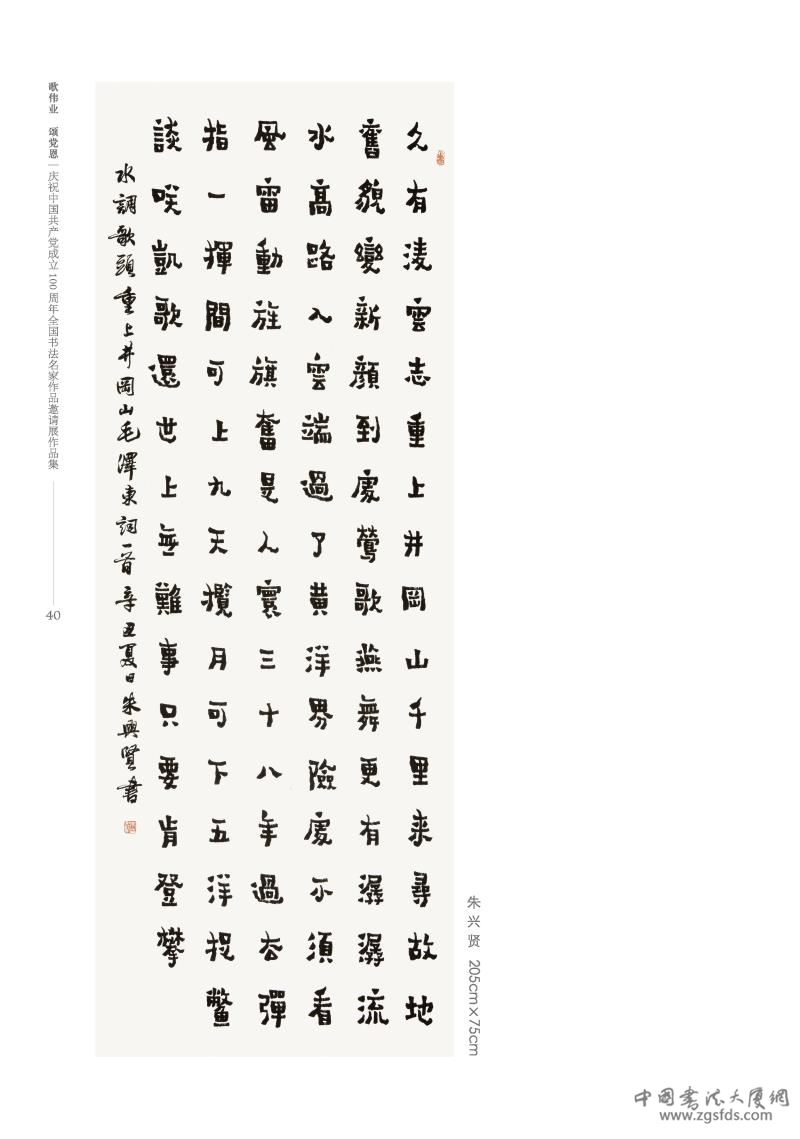 久有淩雲志重上井岡山千里来尋故地
舊貌變新顔到處鶯歌燕舞更有潺潺流
水高路入雲端過了黄洋界險處不須看
風雷動旌旗奮是人寰三十八年過去彈
指一揮間可上九天攬月可下五洋捉鱉
談咲凱歌還世上無難事只要肯登攀
水調歌頭重上井岡山毛澤東詞一首辛丑夏日朱興賢書
朱兴贤 205cm×75cm
歌伟业 颂党恩|庆祝中国共产党成立100周年全国书法名家作品邀请展作品集
40
中国書法大厦網
www.zgsfds.com